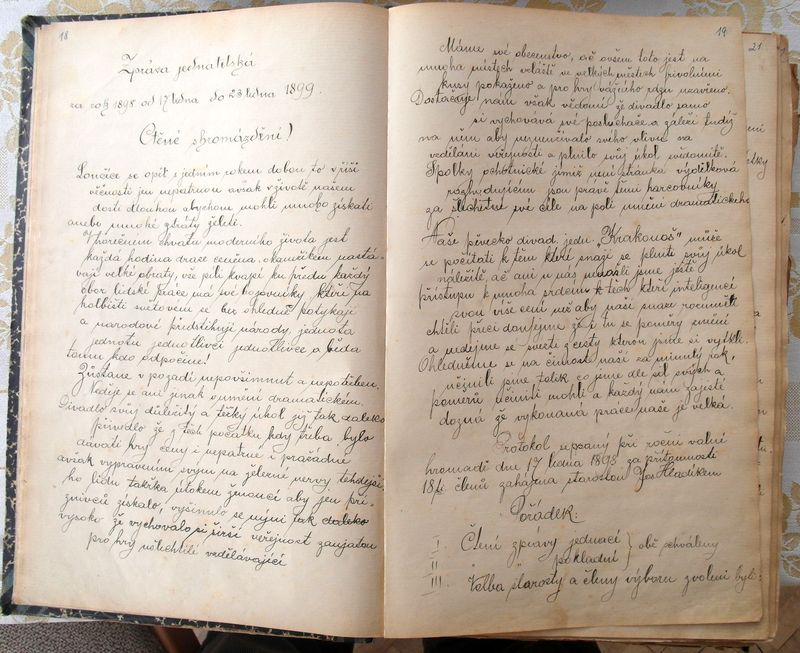 18
Zpráva jednatelská
za rok 1898 od 17 ledna do 23 ledna 1899.
Ctěné shromáždění!
Loučíce se opět s jedním rokem dobou to v říši
věčnosti jen nepatrnou avšak v životě našem
dosti dlouhou abychom mohli mnoho získati
anebo mnohé ztráty želeti.
V horečném chvatu moderního života jest
každá hodina draze ceněna. okamžikem nastá-
vají velké obraty, vše pílí kvapí ku předu každý
obor lidské práce má své bojovníky kteří na
kolbišti světovém se bez ohledně potýkají
a národové předstihují národy, jednota
jednotu jednotlivci jednotlivce a běda
tomu kdo odpočine!
Zůstane v pozadí nepovšimnut a nepotěšen.
Neděje se ani jinak v umění dramatickém.
Divadlo svůj důležitý a těžký úkol jej tak daleko
přivedlo že z těch počátku kdy třeba bylo
dávati hry ceny i nepatrné i prařádné
avšak vypravením svým na železné nervy tehdejší-
ho lidu takřka útokem ženoucí aby jen pří-
znivců získalo, vyšinulo se nyní tak daleko
vysoko že vychovalo si širší veřejnost zaujatou
pro hry ušlechtilé vzdělávající
19
Máme své obecenstvo, ač ovšem toto jest na
mnoha místech zvláště ve velkých městech frivolními
kusy pokaženo a pro hry vážného rázu uzavřeno.
Dostačuje nám však vědomí že divadlo samo
si vychovává své posluchače a záleží tudíž
na něm aby neumenšovalo svého vlivu na
vzdělání veřejnosti a plnilo svůj úkol svědomitě.
Spolky ochotnické jimiž není stránka výdělková
rozhodujícím jsou právě těmi harcovníky
za šlechetné své cíle na poli umění dramatického
Naše pěvecko divad. jedn. „Krakonoš" může
se počítati k těm kteří snaží se plniti svůj úkol
náležitě, ač ani u nás neměli jsme ještě
přístupu k mnoha srdcem k těch kteří inteligencí
svou výše cení než aby naší snaze rozuměti
chtěli přeci doufejme že i tu se poměry změní
a nedejme se svésti z cesty kterou jsme si vytkli.
Ohlédněme se na činnost naši za minulý rok,
učinili jsme tolik co jsme dle sil svých a
poměrů učiniti mohli a každý nám zajisté
dozná že vykonaná práce naše je velká.
Protokol sepsaný při roční valné
hromadě dne 17 ledna 1898 za přítomnosti
18ti členů zahájena starostou Jos Hladíkem
Pořádek:
I. Čtení zprávy jednací } obě schváleny
II pokladní
III. Volba starosty a členy výboru zvoleni byli:
21